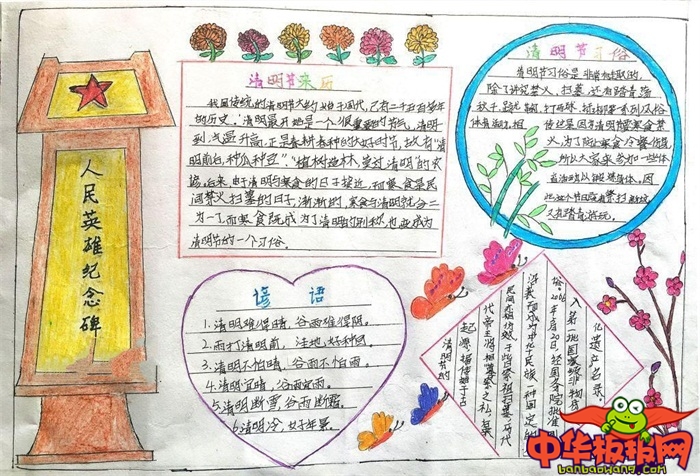 人民英雄纪念碑
清明节来历
我国传统的清明节大约始于周代,已有二千五百多年
的历史,清明最开始是一个很重要的节气,清明一
到,气温升高,正是春耕春种的大好时节,故有“清
明前后,种瓜种豆”“植树造林,莫过清明”的农
谚。后来,由于清明与寒食的日子接近,而寒食是民
间禁火扫墓的日子,渐渐的,寒食与清明就合二
为一了,而寒食既成为了清明的别称,也变成为
清明节的一个习俗。
清明节习俗
清明节习俗是丰富有趣的,
除了讲究禁火、扫墓,还有踏青、荡
秋千、蹴鞠、打马球、插柳等一系列风俗
体育活动,相传这是因为清明节要寒食禁
火,为了防止寒食冷餐伤身,
所以大家来参加一些体
育活动,以锻炼身体。因
谚语
1.清明难得晴,谷雨难得阴。
2.雨打清明前,洼地好种田。
3.清明不怕晴,谷雨不怕雨。
4.清明宜晴,谷雨宜雨。
5.清明断雪,谷雨断霜。
6.清明冷,好年景。
清明节的
起源,据传始于古
代帝王将相“墓祭”之礼,后来
民间亦相仿效,于此日祭祖扫墓,历代
沿袭而成为中华民族一种固定的
俗。2006年5月20日,经国务院批准列
入第一批国家级非物质
化遗产名录。
中华板报网
banbaowang.com